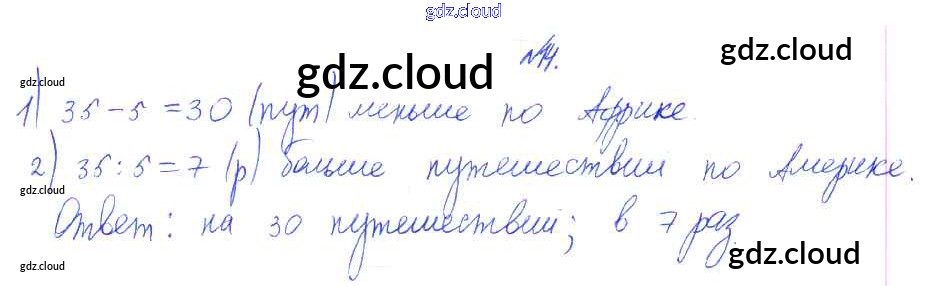 gdz.cloud
№14.
gdz.cloud
gdz.cloud
gdz.cloud
1) 35 - 5 = 30 (пут) меньше по Африке.
2) 35 : 5 = 7 (р) больше путешествий по Америке.
gdz.cloud
Ответ: на 30 путешествий; в 7 раз.
gdz.cloud
gdz.cloud